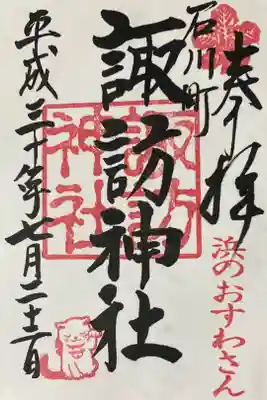 奉拝
石川町
諏訪神社
諏訪神社
浜のおすわさん
平成三十年七月二十二日